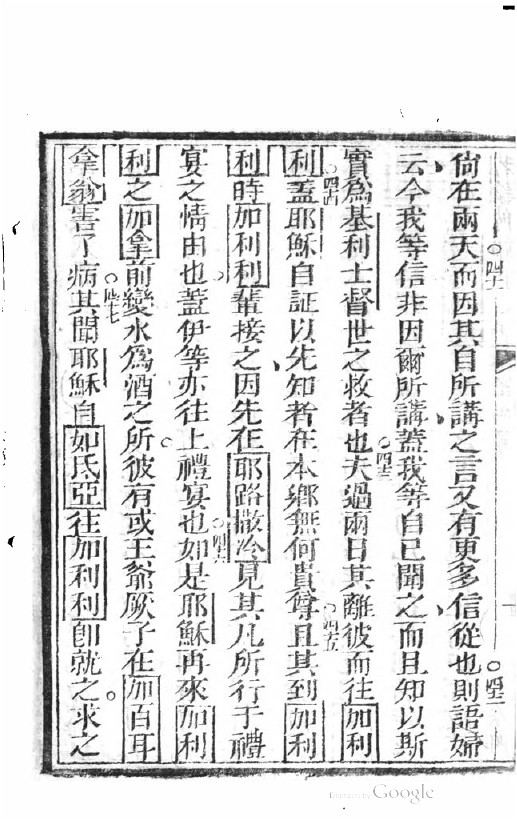 倘在兩天而因其自所講之言又有更多信從也則語婦
云今我等信非因爾所講蓋我等自己聞之而且知以斯
實為基利士督世之救者也夫過兩日其離彼而往加利
利蓋耶穌自証以先知者在本鄉無何貴尊且其到加利
利時加利利輩接之因先在耶路撒冷見其凡所行于禮
宴之情由也蓋伊等亦往上禮宴也如是耶穌再來加利
利之加拿前變水為酒之所彼有或王爺厥子在加百耳
拿翁害了病其聞耶穌自如氐亞往加利利卽就之求之
四十一
四十二
四十三
四十四
四十五
四十六
四十七
Digitized by Google